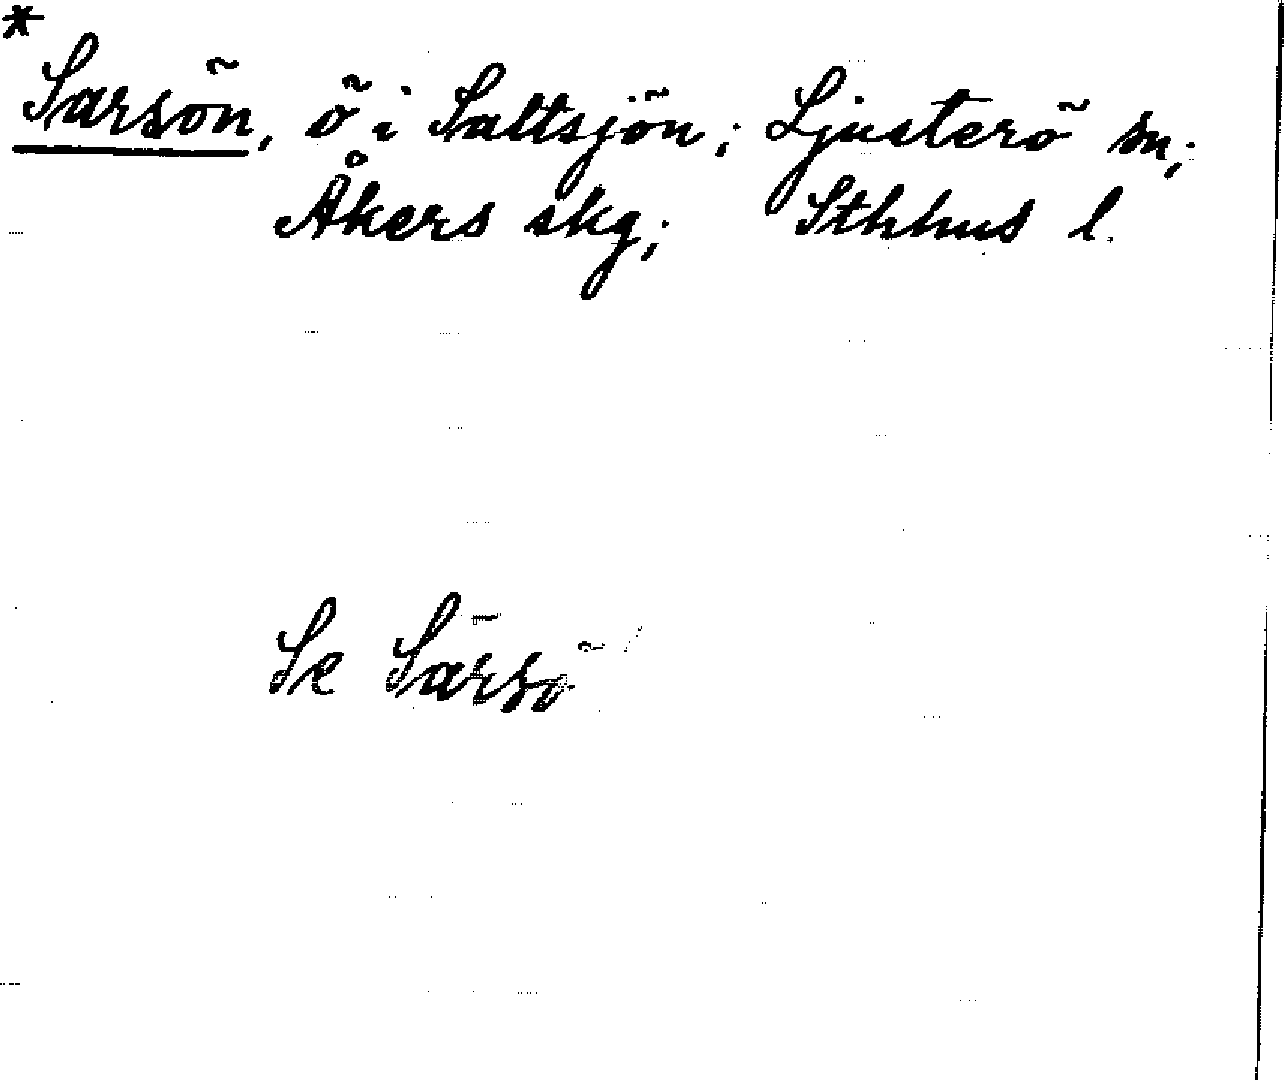 *
Sarsön, ö i Saltsjön; Ljusterö sn;
Åkers skg; Sthhus l.
Se Särsö